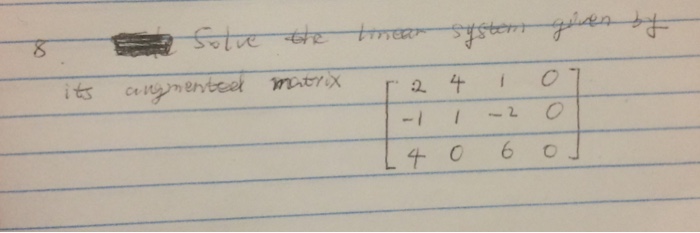 8. Solve the linear system given by
its augmented matrix
2 4 1 0
-1 1 -2 0
4 0 6 0